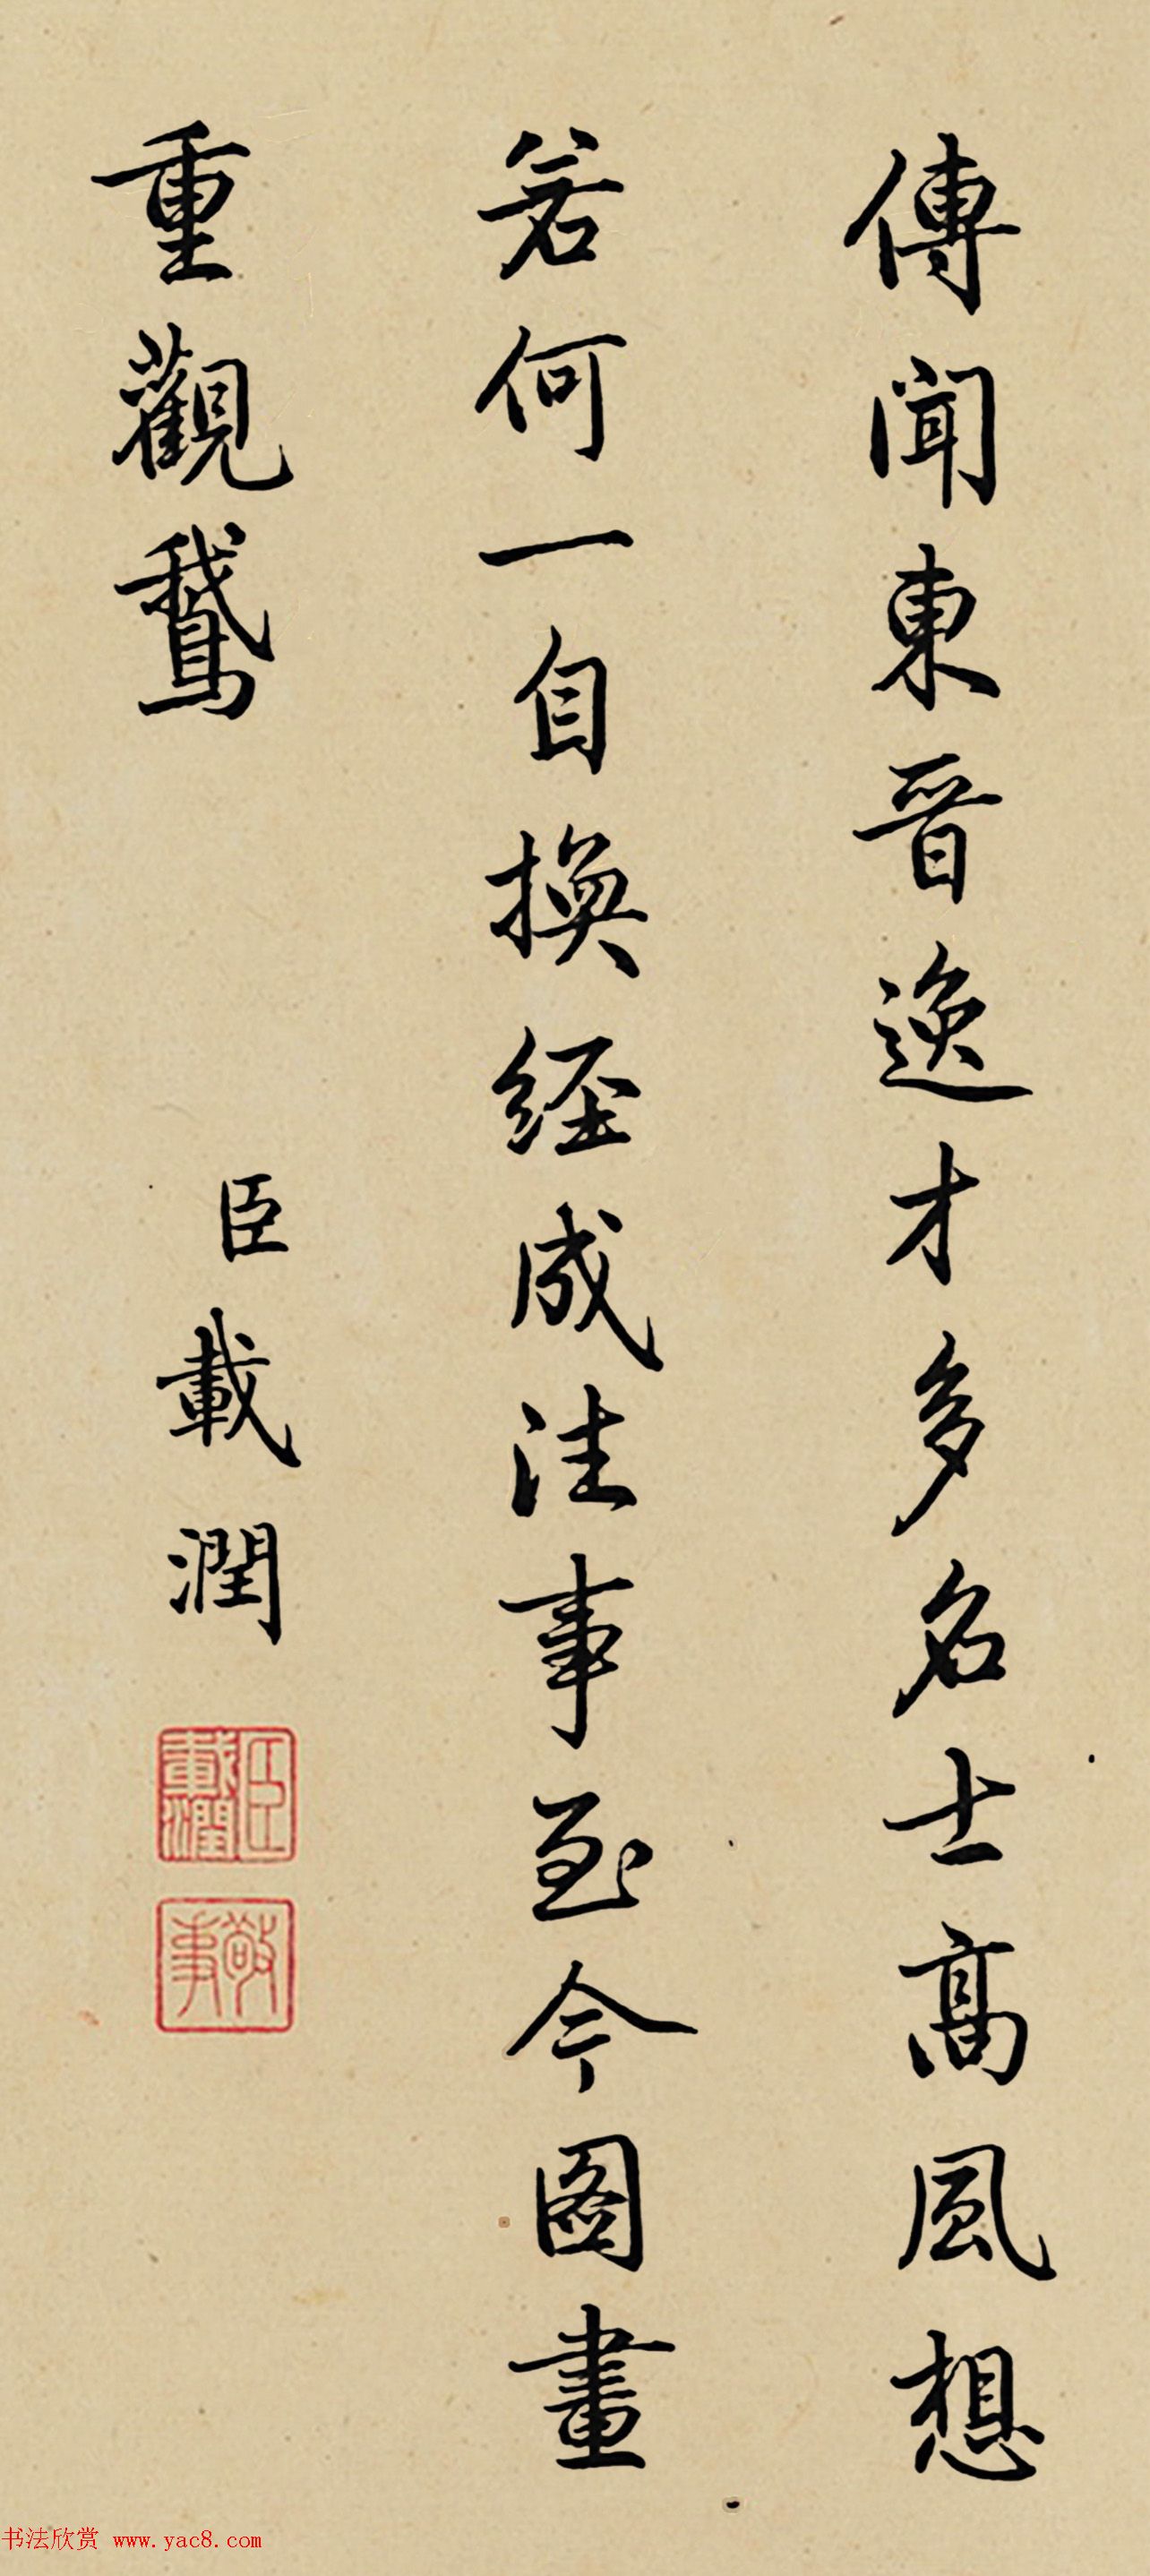 傳聞東晉逸才多名士高風想
若何一自換經成法事至今圖畫
重觀鵞
臣載潤
臣載潤
敬事
书法欣赏 www.yac8.com